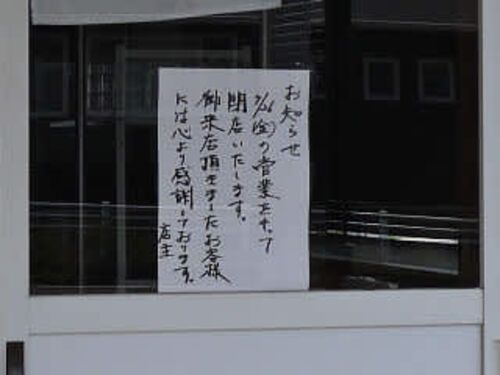 お知らせ
7/26(金)の営業をもって
閉店いたします。
御来店頂きましたお客様
には心より感謝しております。
店主